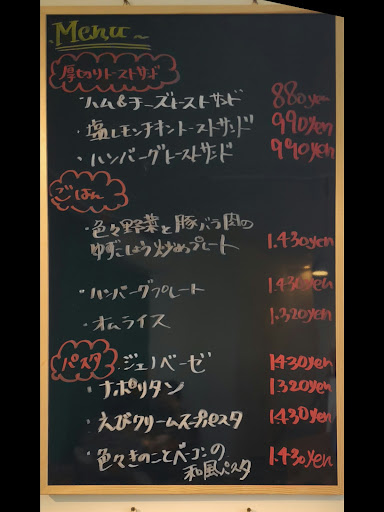 Menu
厚切りトーストサンド
・ハム&チーズトーストサンド 880yen
・塩レモンチキントーストサンド 990yen
・ハンバーグトーストサンド 990yen
ごはん
・色々野菜と豚バラ肉の
ゆずこしょう炒めプレート 1.430yen
・ハンバーグプレート 1.430yen
・オムライス 1.320yen
パスタ ジェノベーゼ 1430yen
・ナポリタン 1320yen
・えびクリームスープパスタ 1.430yen
・色々きのことベーコンの
和風パスタ 1.430yen